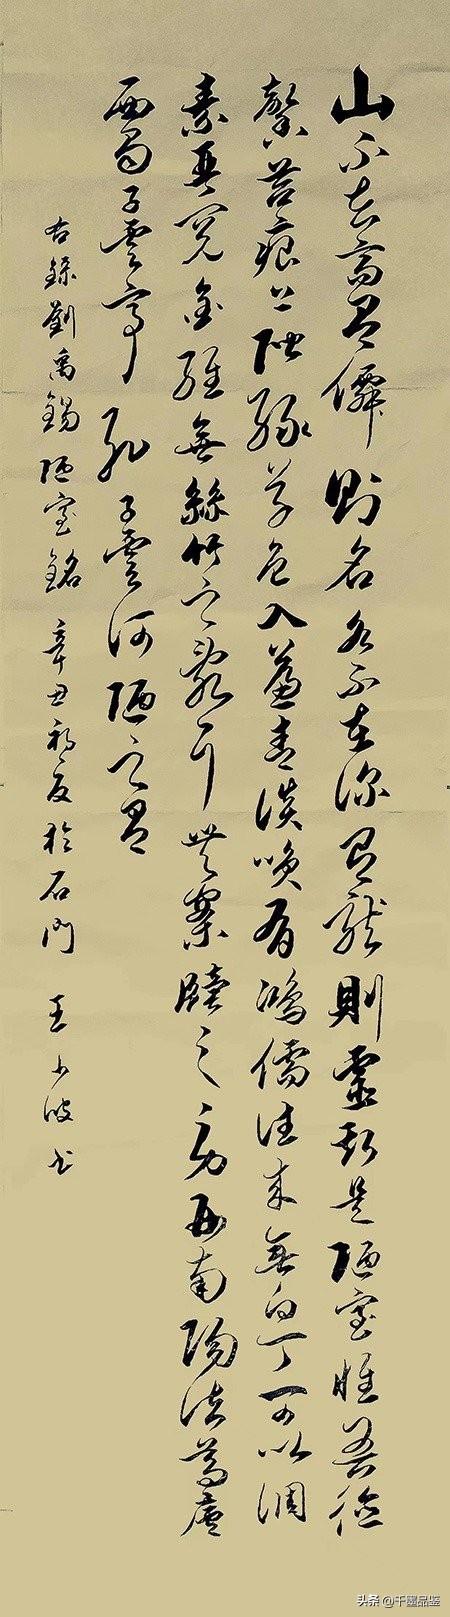 山不在高有僊則名水不在深有龍則靈斯是陋室惟吾德
馨苔痕上階綠草色入簾青談咲有鴻儒往来無白丁可以調
素琴閱金經無絲竹之亂耳無案牘之勞形南陽諸葛廬
西蜀子雲亭孔子雲何陋之有
右錄劉禹錫陋室銘 辛丑初夏於石門 王少波书
头条 @千璽品鉴